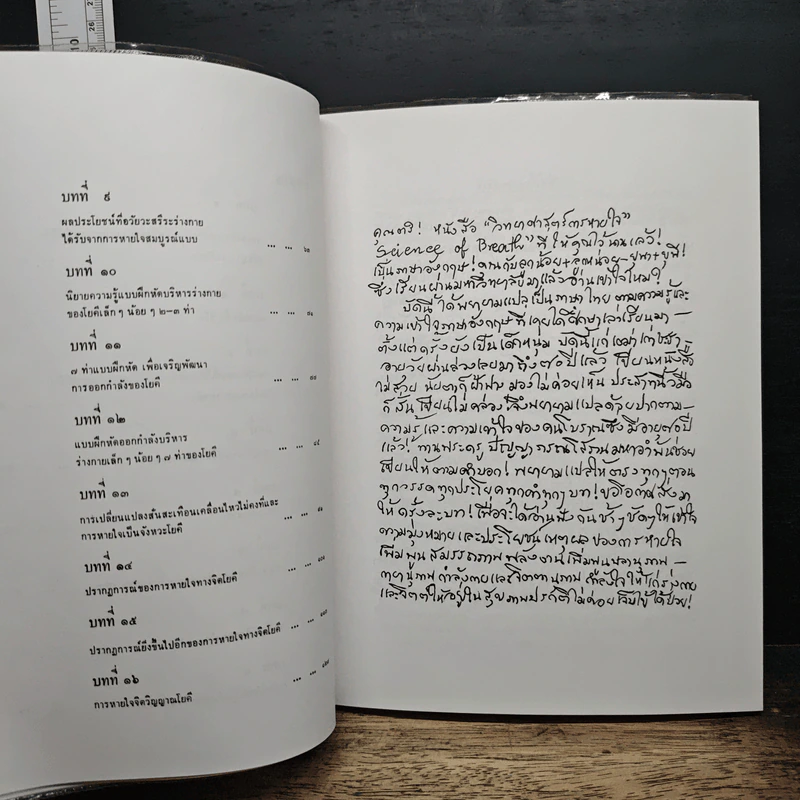 บทที่ ๙
ผลประโยชน์ที่อวัยวะสรีระร่างกาย
ได้รับจากการหายใจสมบูรณ์แบบ ... ...
บทที่ ๑๐
นิยายความรู้แบบฝึกหัดบริหารร่างกาย
ของโยคีเล็ก ๆ น้อย ๆ ๒-๓ ท่า ... ...
บทที่ ๑๑
๗ ท่าแบบฝึกหัด เพื่อเจริญพัฒนา
การออกกำลังของโยคี ... ...
บทที่ ๑๒
แบบฝึกหัดออกกำลังบริหาร
ร่างกายเล็ก ๆ น้อย ๆ ๗ ท่าของโยคี ... ...
บทที่ ๑๓
การเปลี่ยนแปลงสั่นสะเทือนเคลื่อนไหวไม่คงที่และ
การหายใจเป็นจังหวะโยคี ... ...
บทที่ ๑๔
ปรากฏการณ์ของการหายใจทางจิตโยคี ... ...
บทที่ ๑๕
ปรากฏการณ์ยิ่งขึ้นไปอีกของการหายใจทางจิตโยคี ... ...
บทที่ ๑๖
การหายใจจิตวิญญาณโยคี ... ...
หนังสือ "วิทยาศาสตร์การหายใจ"
Science of Breath" ที่ให้คุณไว้นานแล้ว!
เป็นภาษาอังกฤษ!
ซึ่งเรียนผ่านมหาวิทยาลัยมาแล้วอ่านเข้าใจไหม?
บัดนี้ ได้พยายามแปลเป็นภาษาไทย ตามความรู้และ
ความเข้าใจภาษาอังกฤษที่เคยได้ศึกษาเล่าเรียนมา-
ตั้งแต่ครั้งยังเป็นเด็กหนุ่ม บัดนี้แก่เฒ่าเก่าชรา-
อายุวัยผ่านล่วงเลยมาถึง๘๐ปีแล้ว เขียนหนังสือ
ไม่สวย นัยตาก็ฝ้าฟาง มองไม่ค่อยเห็น ประสาทนิ้วมือ
ก็สั่น เขียนไม่คล่อง จึงพยายามแปลด้วยปากตาม-
ความรู้และความเข้าใจของคนโบราณซึ่งมีอายุ๘๐ปี
แล้ว! ท่านพระครู
เขียนให้ตามคำบอก! พยายามแปลให้ตรงทุกๆตอน
ทุกวรรคทุกประโยคทุกคำทุกๆบท! ขอโอกาสส่งมา
ให้ครั้งละบท! เพื่อจะได้อ่านฟังกันช้าๆชัดๆให้เข้าใจ
ความมุ่งหมายและประโยชน์เหตุผลของการหายใจ
เพิ่มพูนสมรรถภาพพลังงาน
กำลังกายและจิตตานุภาพ กำลังใจให้แก่ร่างกาย
และจิตต์ให้อยู่ในสุขภาพปรกติไม่ค่อยเจ็บไข้ได้ป่วย!